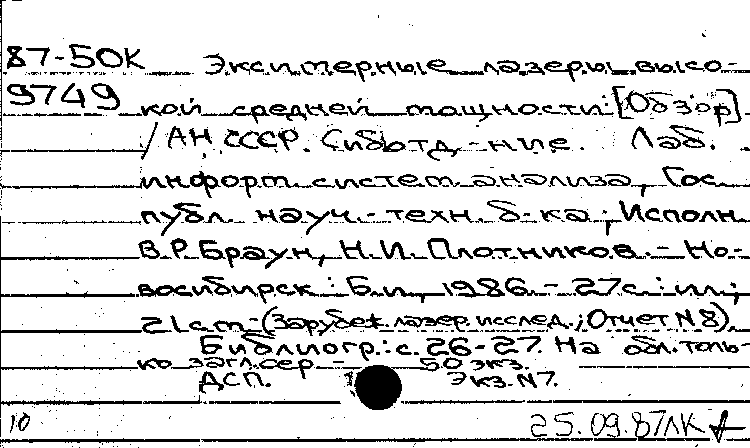 87-50К Эксимерные лазеры высо-
9749 кой средней мощности: [Обзор]
/ АН СССР. Сиб. отд-ние. Лаб.
информ. систем. анализа, Гос.
публ. науч.-техн. б-ка; Исполн.
В.Р. Браун, Н.И. Плотников. - Но-
восибирск: Б.и., 1986. - 27с.: ил.;
21см. - (Зарубеж. лазер. исслед.; Отчет N 8)
Библиогр.: с. 26-27. На обл. толь-
ко загл. сер. - 50 экз.
ДСП. Экз. N7.
10 25.09.87ЛК